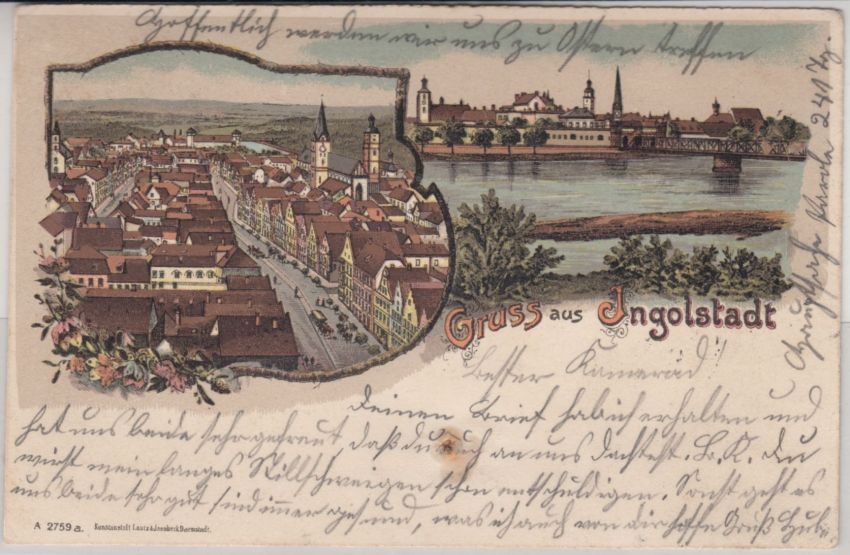 Hoffentlich werden wir uns zu Ostern treffen
Hauptsache Parole 241 Tg.
Gruss aus Ingolstadt
Bester Kamerad!
Deinen Brief hab ich erhalten und
hat uns beide sehr gefreut, daß du auch an uns dachtest. L. K. du
wirst mein langes Stillschweigen schon entschuldigen. Sonst geht es
uns beide sehr gut sind immer gesund, was ich auch von dir hoffe Gruß
A 2759 a. Kunstanstalt Lautz & Jsenbeck Darmstadt.